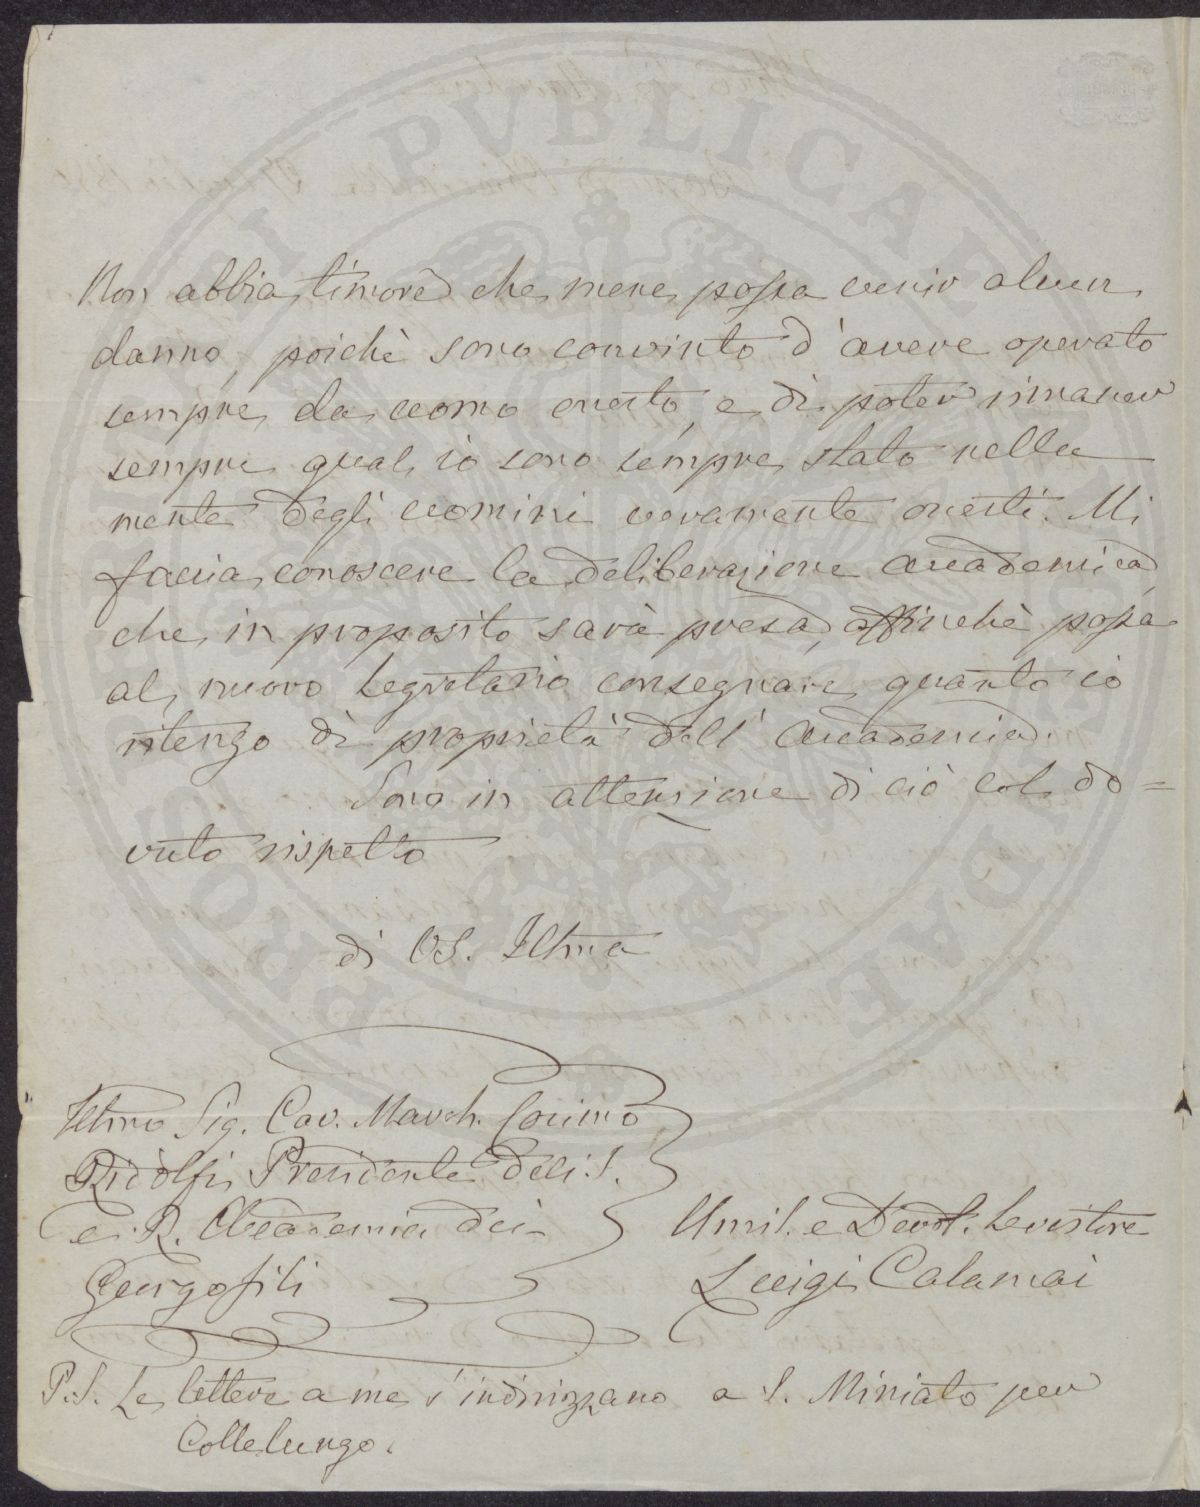 Non abbia timore che mene possa venir alcun
danno, poichè sono convinto d'avere operato
sempre da uomo onesto, e di poter rimaner
sempre qual io sono sempre stato nella
mente degli uomini veramente onesti. Mi
faccia conoscere la deliberazione accademica
che in proposito sarà presa, affinchè possa
al nuovo Segretario consegnare quanto io
ritengo di proprietà dell'Accademia.
Sono in attenzione di ciò col do=
vuto rispetto
di VS. Illma
Illmo Sig. Cav. March. Cosimo
Ridolfi Presidente dell'I.
e R. Accademia dei
Georgofili
Umil. e Devot. Servitore
Luigi Calamai
P.S. Le lettere a me s'indirizzano a S. Miniato per
Collelungo.
PUBLICAE
PROSPERITATI